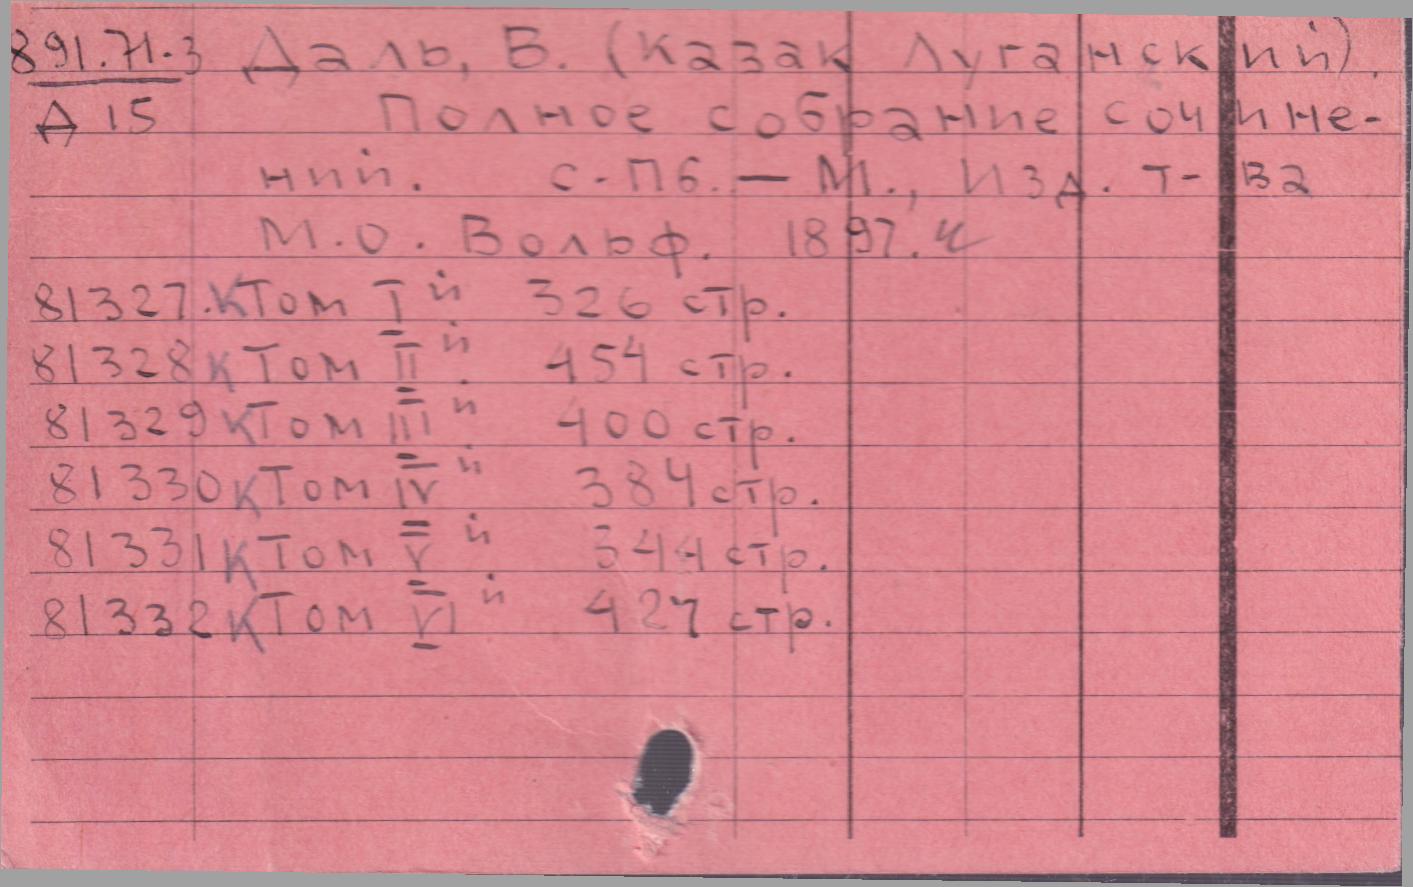 891.71-3 Даль, В. (Казак Луганский).
Д 15 Полное собрание сочине-
ний. С-Пб. — М., Изд. т-ва
М.О. Вольф. 1897.
81327.К Том I й 326 стр.
81328 К Том II й 454 стр.
81329 К Том III й 400 стр.
81330 К Том IV й 384 стр.
81331 К Том V й 344 стр.
81332 К Том VI й 427 стр.